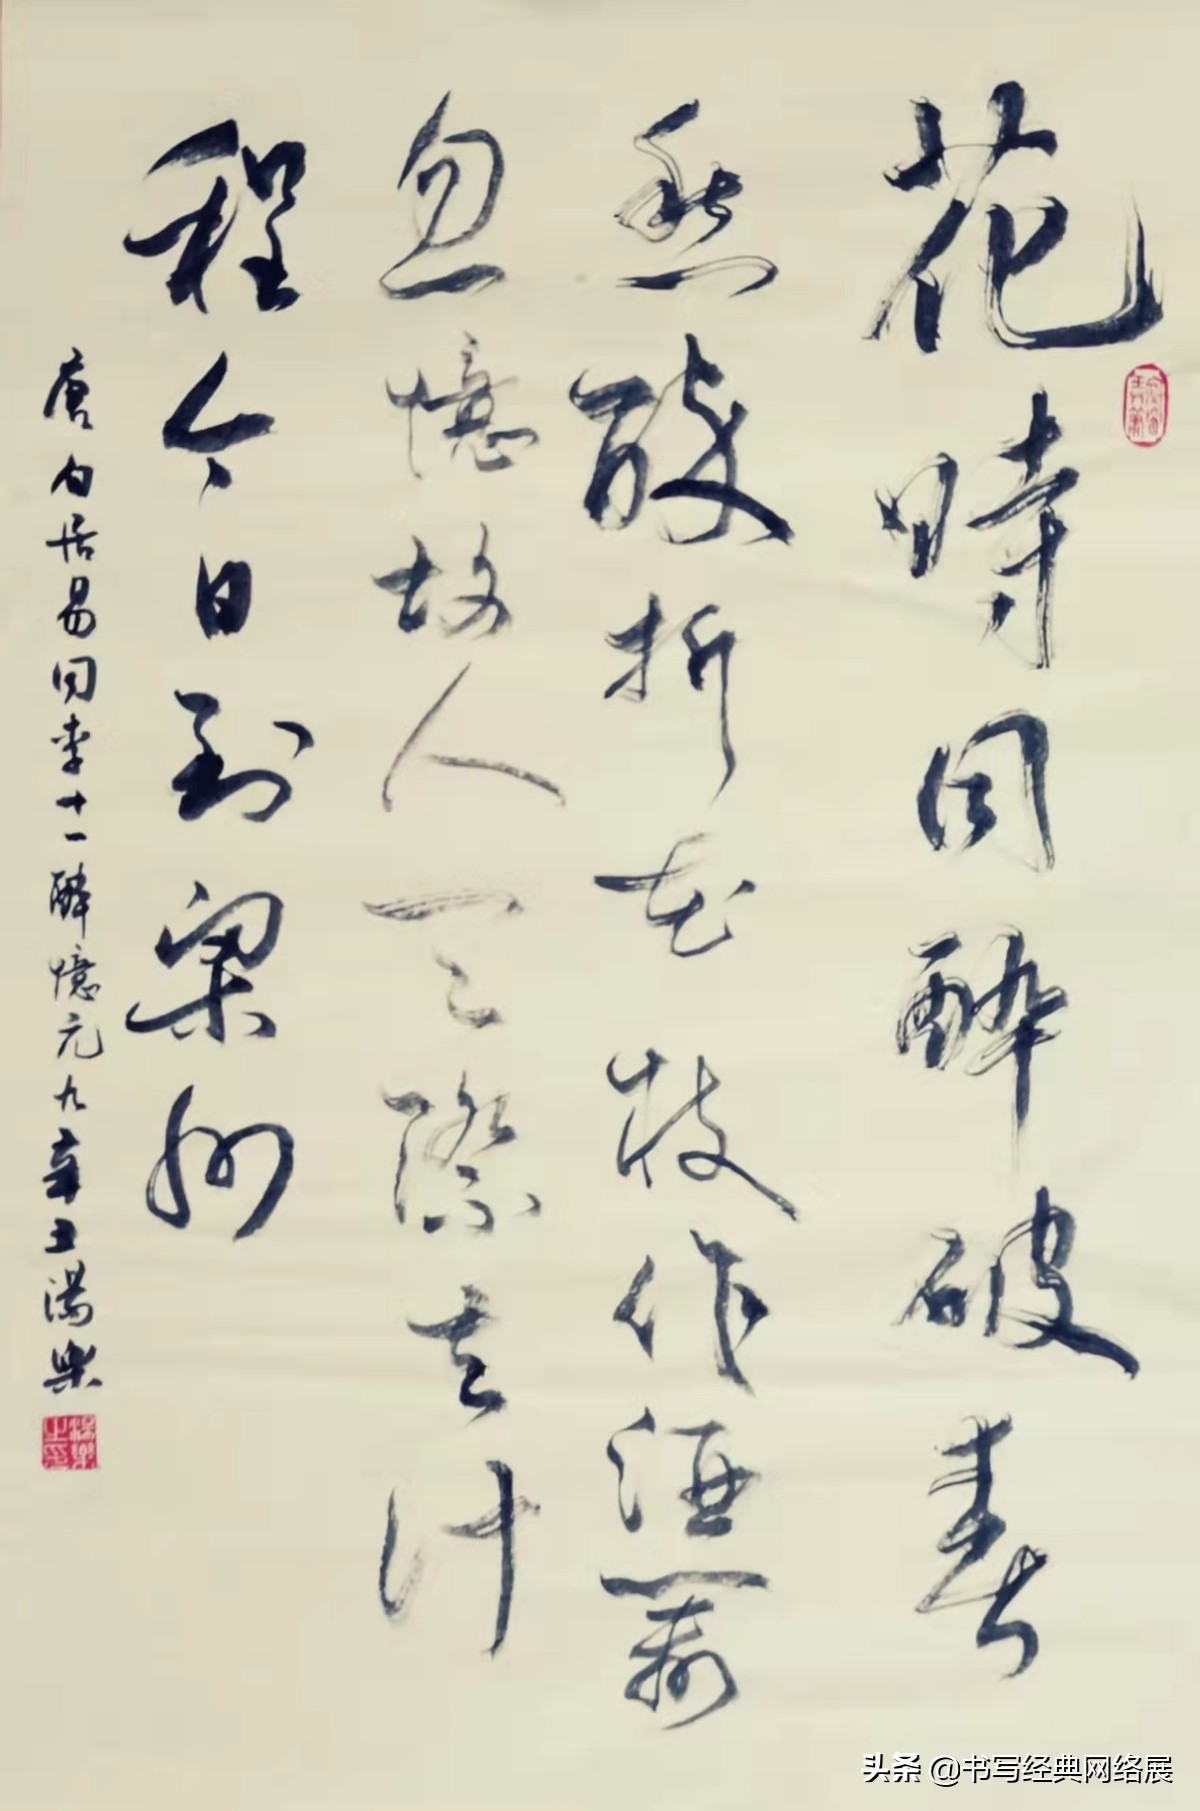 花時同醉破春
愁醉折花枝作酒籌
忽憶故人天際去計
程今日到梁州
唐白居易同李十一醉憶元九辛丑湯樂
湯樂之印
头条 @书写经典网络展